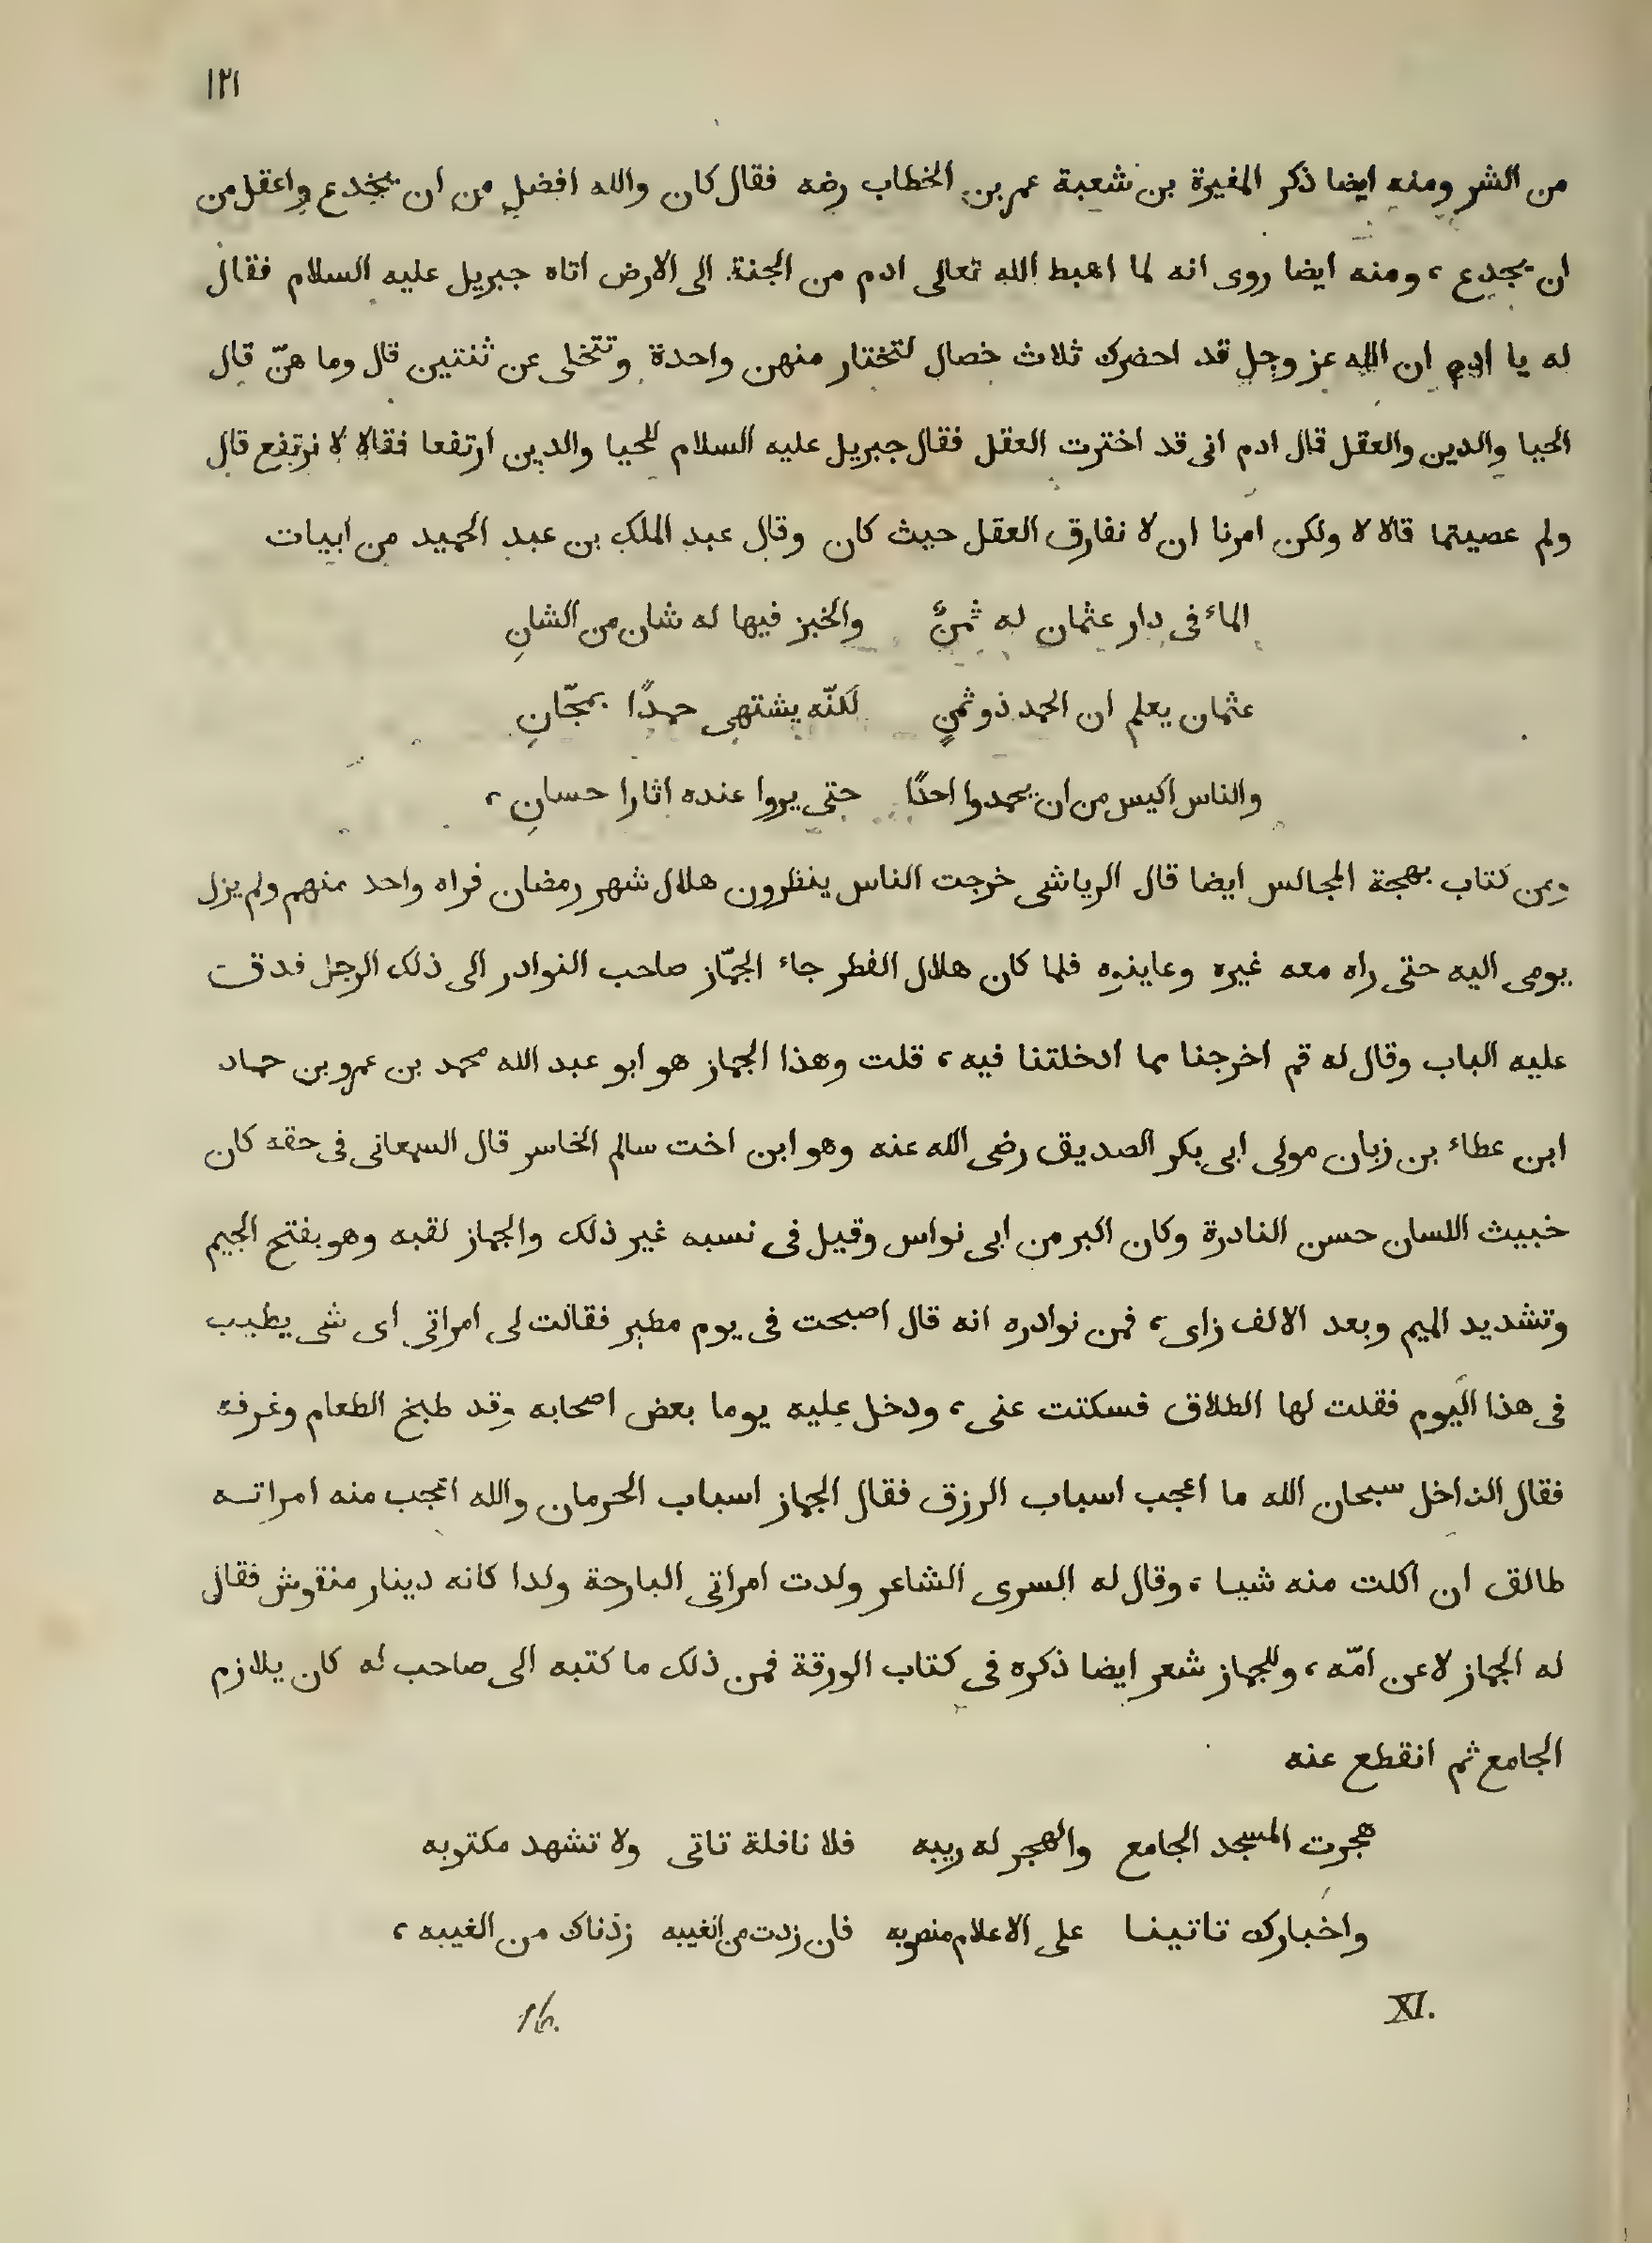 ١٢١
من الشر ومنه ايضا ذكر المغيرة بن شعبة عمر بن الخطاب رضه فقال كان والله افضل من ان يخدع واعقل من
ان يجدع ، ومنه ايضا روى انه لما اهبط الله تعالى ادم من الجنة الى الارض اتاه جبريل عليه السلام فقال
له يا ادم ان الله عز وجل قد احضرك ثلاث خصال لتختار منهن واحدة وتتخلى عن ثنتين قال وما هنّ قال
الحيا والدين والعقل قال ادم انى قد اخترت العقل فقال جبريل عليه السلام للحيا والدين ارتفعا فقالا لا نرتفع قال
ولم عصيتما قالا لا ولكن امرنا ان لا نفارق العقل حيث كان وقال عبد الملك بن عبد الحميد من ابيات
الماء فى دار عثمان له ثمنٌ والخبز فيها له شان من الشانِ
عثمان يعلم ان الحمد ذو ثمنٍ لكنّه يشتهى حمدًا بمجّانِ
والناس اكيس من ان يحمدوا احدًا حتى يروا عنده اثارا حسانِ ،
ومن كتاب بهجة المجالس ايضا قال الرياشى خرجت الناس ينظرون هلال شهر رمضان فراه واحد منهم ولم يزل
يومى اليه حتى راه معه غيره وعاينوه فلما كان هلال الفطر جاء الجمّاز صاحب النوادر الى ذلك الرجل فدق
عليه الباب وقال له قم اخرجنا مما ادخلتنا فيه ، قلت وهذا الجماز هو ابو عبد الله محمد بن عمرو بن حماد
ابن عطاء بن زبان مولى ابى بكر الصديق رضى الله عنه وهو ابن اخت سالم الخاسر قال السمعانى فى حقه كان
خبيث اللسان حسن النادرة وكان اكبر من ابى نواس وقيل فى نسبه غير ذلك والجماز لقبه وهو بفتح الجيم
وتشديد الميم وبعد الالف زاى ، فمن نوادره انه قال اصبحت فى يوم مطير فقالت لى امراتى اى شى يطيب
فى هذا اليوم فقلت لها الطلاق فسكتت عنى ، ودخل عليه يوما بعض اصحابه وقد طبخ الطعام وغرفه
فقال الداخل سبحان الله ما اعجب اسباب الرزق فقال الجماز اسباب الحرمان والله اعجب منه امراته
طالق ان اكلت منه شيا ، وقال له السرى الشاعر ولدت امراتى البارحة ولدا كانه دينار منقوش فقال
له الجماز لاعن امّه ، وللجماز شعر ايضا ذكره فى كتاب الورقة فمن ذلك ما كتبه الى صاحب له كان يلازم
الجامع ثم انقطع عنه
هجرت المسجد الجامع والهجر له ريبه فلا نافلة تاتى ولا تشهد مكتوبه
واخبارك تاتينا على الاعلام منصوبه فان زدت من الغيبه زدناك من الغيبه ،
XI. 16.